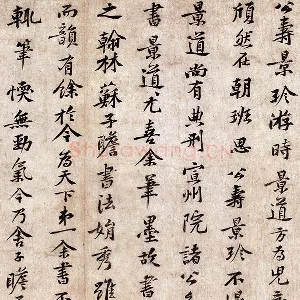 公壽景珍游時景道方為兒
頎然在朝班思公壽景珍不
景道尚有典刑宣州院諸公
書景道尤喜余筆墨故書
之翰林蘇子瞻書法娟秀雖
而韻有餘於今為天下第一余書不
輒筆愞無勁氣今乃舍子瞻